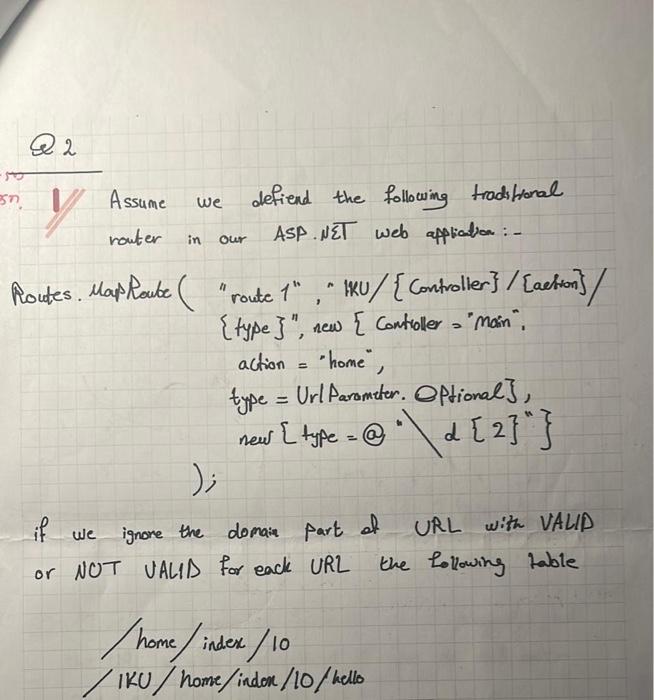 Q 2
1 Assume we defiend the following traditional
router in our ASP.NET web application :-
Routes. MapRoute ( "route 1" , " IKU/{Controller}/{action}/
{type}", new { Controller = "Main",
action = "home",
type = UrlParameter. Optional},
new { type = @ "\d{2}"}
);
if we ignore the domain part of URL with VALID
or NOT VALID for each URL the following table
/home/index/10
/IKU/home/index/10/hello